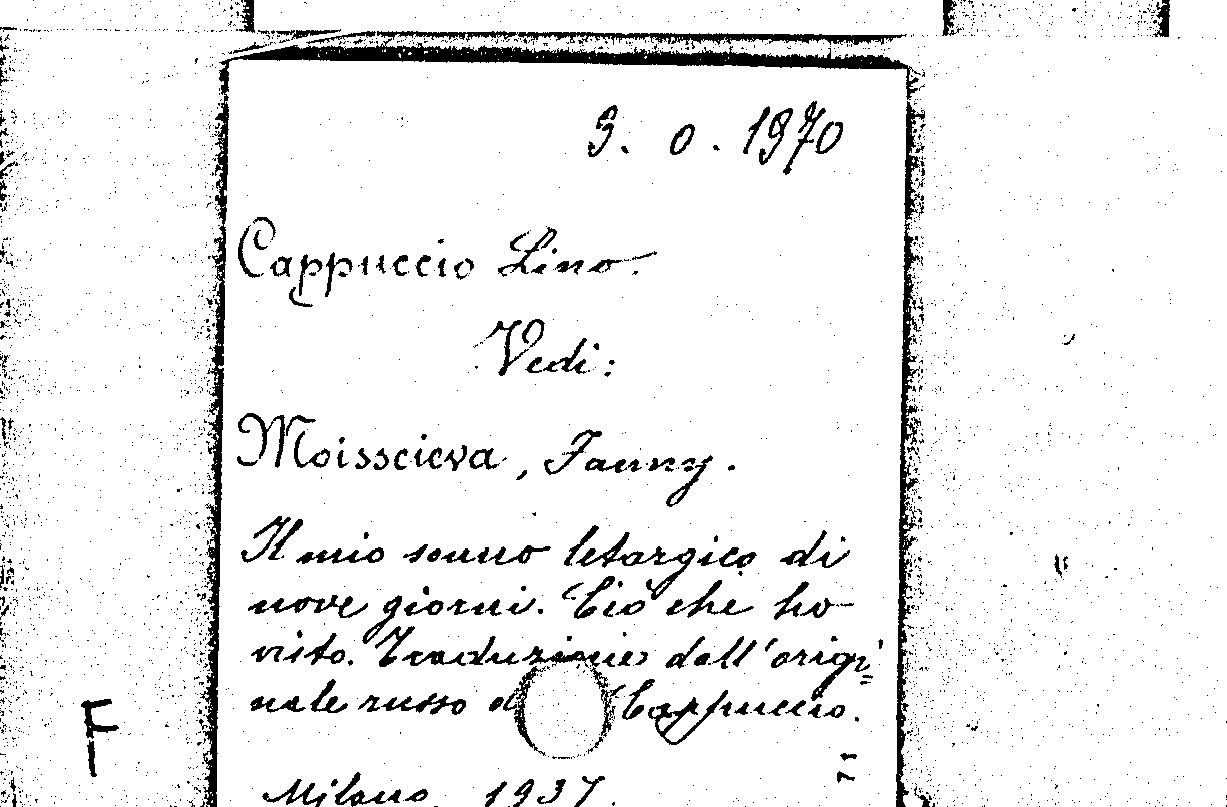 9. O. 1970
Cappuccio Lino.
Vedi:
Moisseieva, Fanny.
Il mio sonno letargico di
nove giorni. Ciò che ho
visto. Traduzione dall'origi=
nale russo d Cappuccio.
Milano, 1937.
F